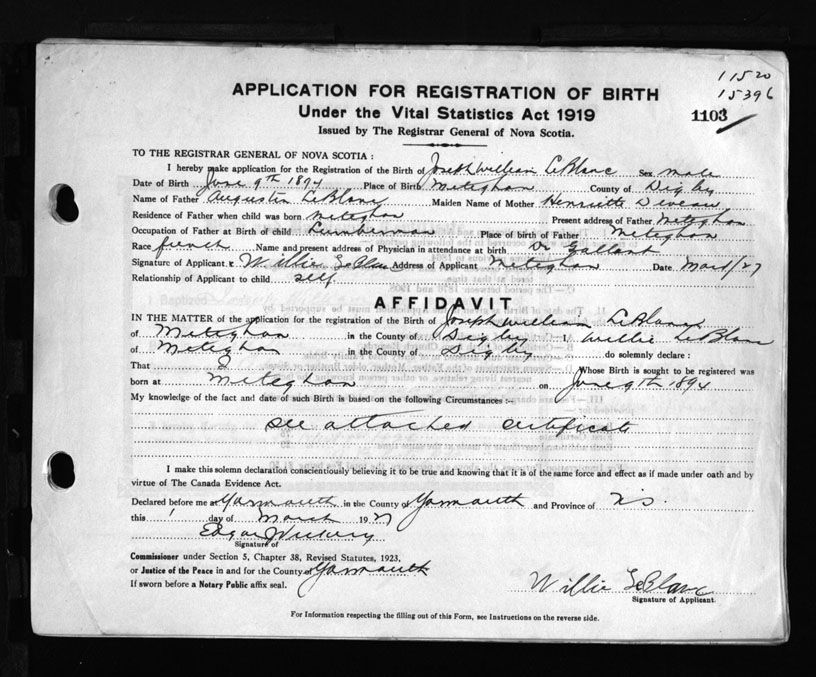 11520
15396
1103
APPLICATION FOR REGISTRATION OF BIRTH
Under the Vital Statistics Act 1919
Issued by The Registrar General of Nova Scotia.
TO THE REGISTRAR GENERAL OF NOVA SCOTIA :
I hereby make application for the Registration of the Birth of Joseph William LeBlanc Sex male
Date of Birth June 9th 1894 Place of Birth Meteghan County of Digby
Name of Father Augustin LeBlanc Maiden Name of Mother Henriette Deveau
Residence of Father when child was born Meteghan Present address of Father Meteghan
Occupation of Father at Birth of child Lumberman Place of Birth of Father Meteghan
Race french Name and present address of Physician in attendance at birth Dr Gallant
Signature of Applicant x Willie LeBlanc Address of Applicant Meteghan Date Mar 1/27
Relationship of Applicant to child self
AFFIDAVIT
IN THE MATTER of the application for the registration of the Birth of Joseph William LeBlanc
of Meteghan in the County of Digby I Willie LeBlanc
of Meteghan in the County of Digby do solemnly declare :
That I Whose Birth is sought to be registered was
born at Meteghan on June 9th 1894
My knowledge of the fact and date of such Birth is based on the following Circumstances :-
see attached certificate
I make this solemn declaration conscientiously believing it to be true and knowing that it is of the same force and effect as if made under oath and by
virtue of The Canada Evidence Act.
Declared before me at Yarmouth in the County of Yarmouth and Province of N.S.
this 1 day of March 1927
Edgar
Signature of
Commissioner under Section 5, Chapter 38, Revised Statutes, 1923,
or Justice of the Peace in and for the County of Yarmouth
If sworn before a Notary Public affix seal.
Willie LeBlanc
Signature of Applicant.
For Information respecting the filling out of this Form, see Instructions on the reverse side.